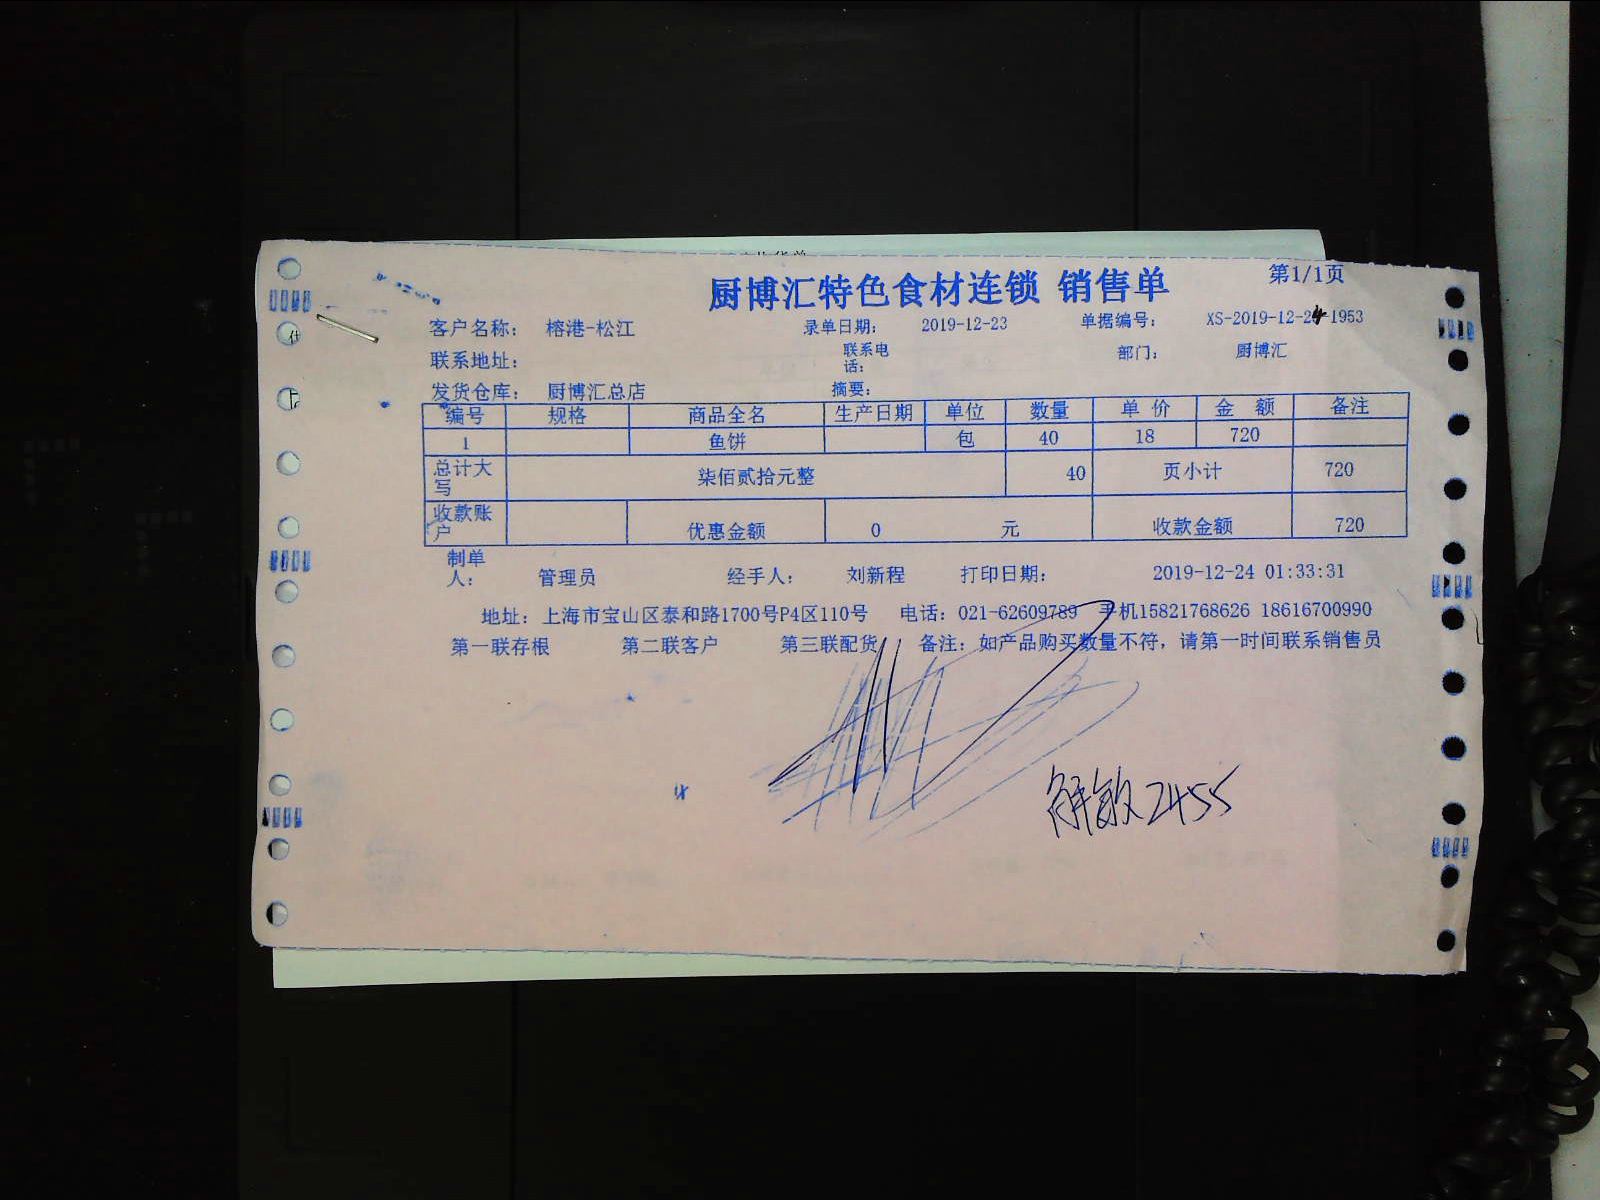 厨博汇特色食材连锁 销售单 第1/1页
客户名称： 榕港-松江 录单日期： 2019-12-23 单据编号： XS-2019-12-24-1953
联系地址： 联系电话： 部门： 厨博汇
发货仓库： 厨博汇总店 摘要：
编号 规格 商品全名 生产日期 单位 数量 单 价 金 额 备注
1 鱼饼 包 40 18 720
总计大写 柒佰贰拾元整 40 页小计 720
收款账户 优惠金额 0 元 收款金额 720
制单人： 管理员 经手人： 刘新程 打印日期： 2019-12-24 01:33:31
地址：上海市宝山区泰和路1700号P4区110号 电话：021-62609789 手机15821768626 18616700990
第一联存根 第二联客户 第三联配货 备注：如产品购买数量不符，请第一时间联系销售员
解敏2455